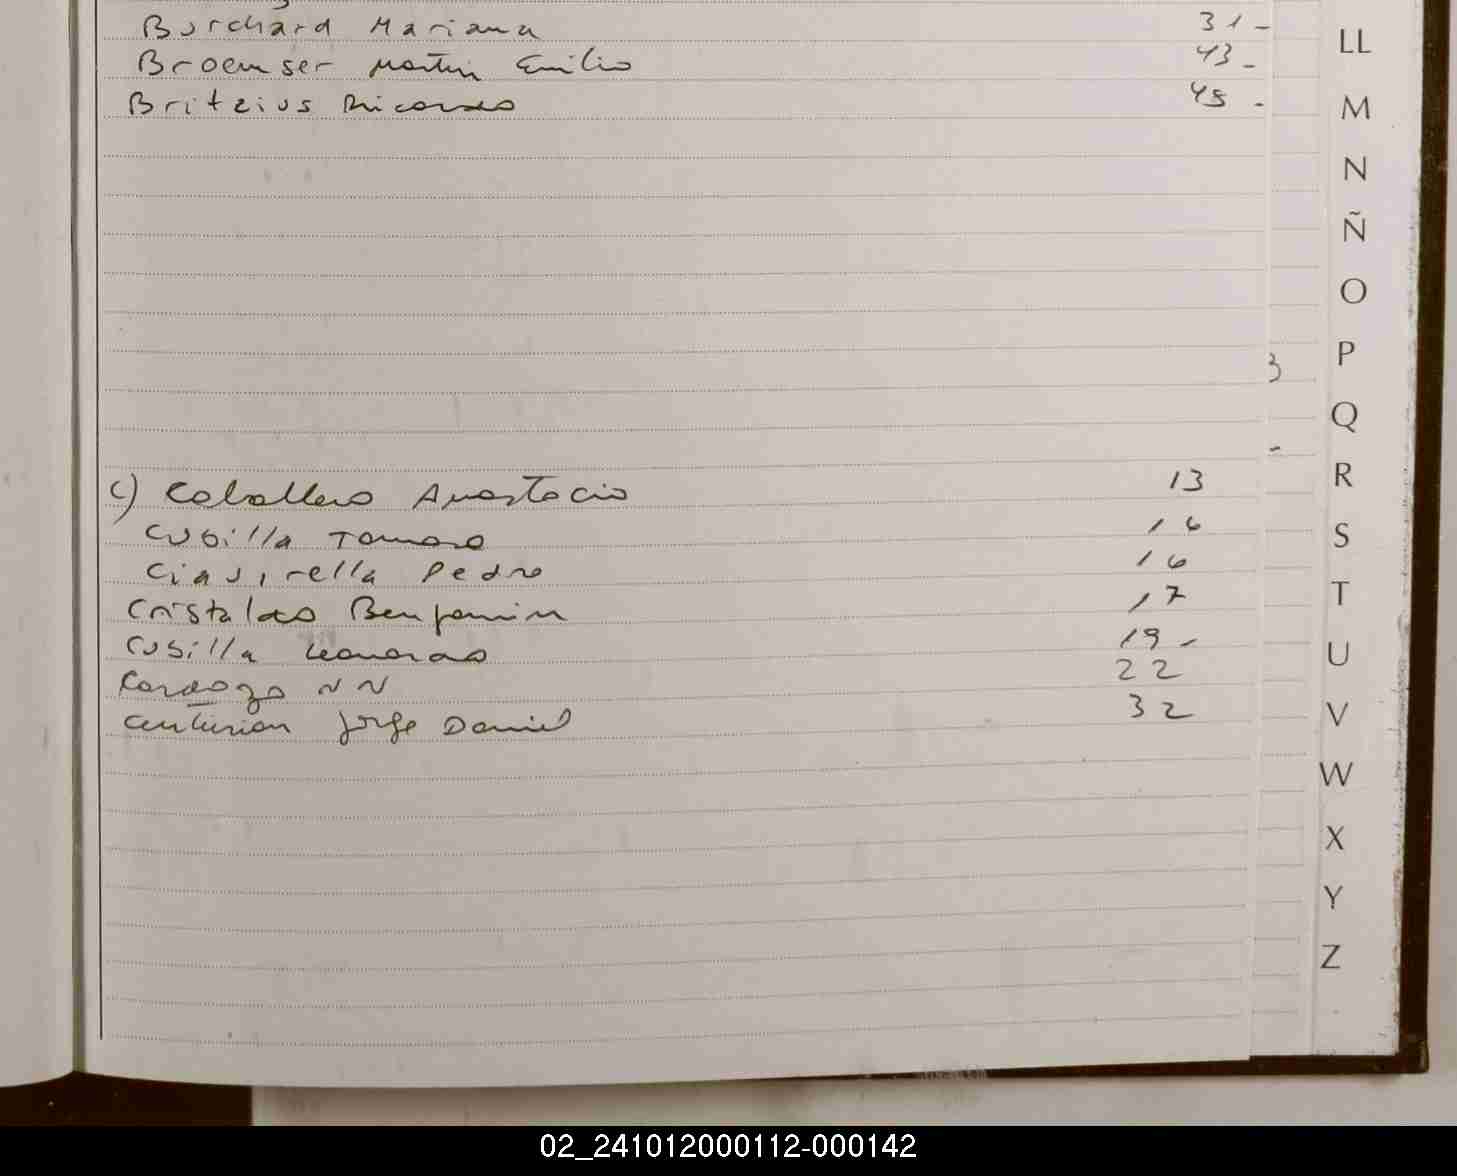 Burchard Mariana 31-
Broemser Martin Emilio 43-
Britzius Ricardo 48-
c) Caballero Anastacio 13
Cubilla Tomasa 16
Ciavirella Pedro 16
Cristaldo Benjamin 17
Cubilla Leonardo 19-
Cardozo NN 22
Centurion Jorge Daniel 32
LL
M
N
Ñ
O
P
Q
R
S
T
U
V
W
X
Y
Z
02_241012000112-000142